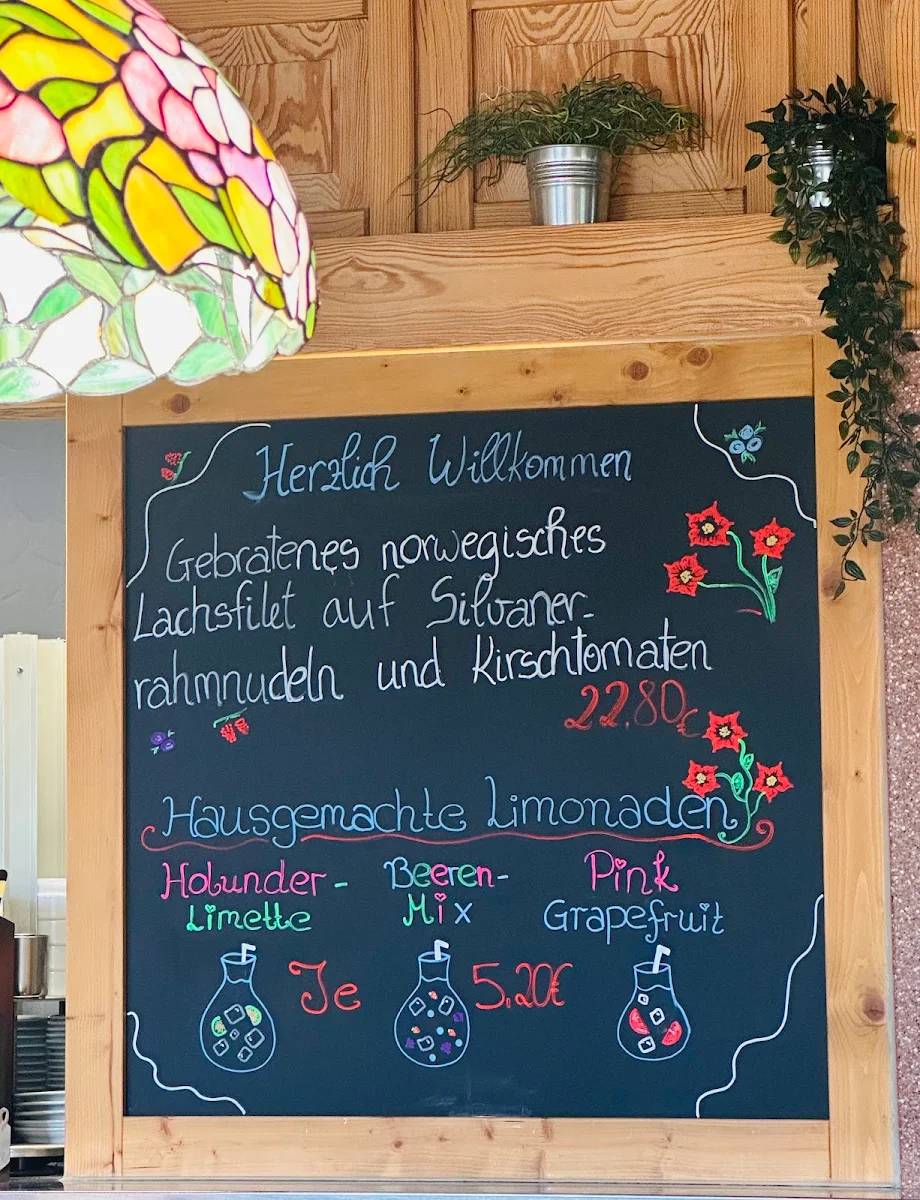 Herzlich Willkommen
Gebratenes norwegisches
Lachsfilet auf Silvaner-
rahmnudeln und Kirschtomaten
22.80€
Hausgemachte Limonaden
Holunder- Beeren- Pink
Limette Mix Grapefruit
Je 5,20€